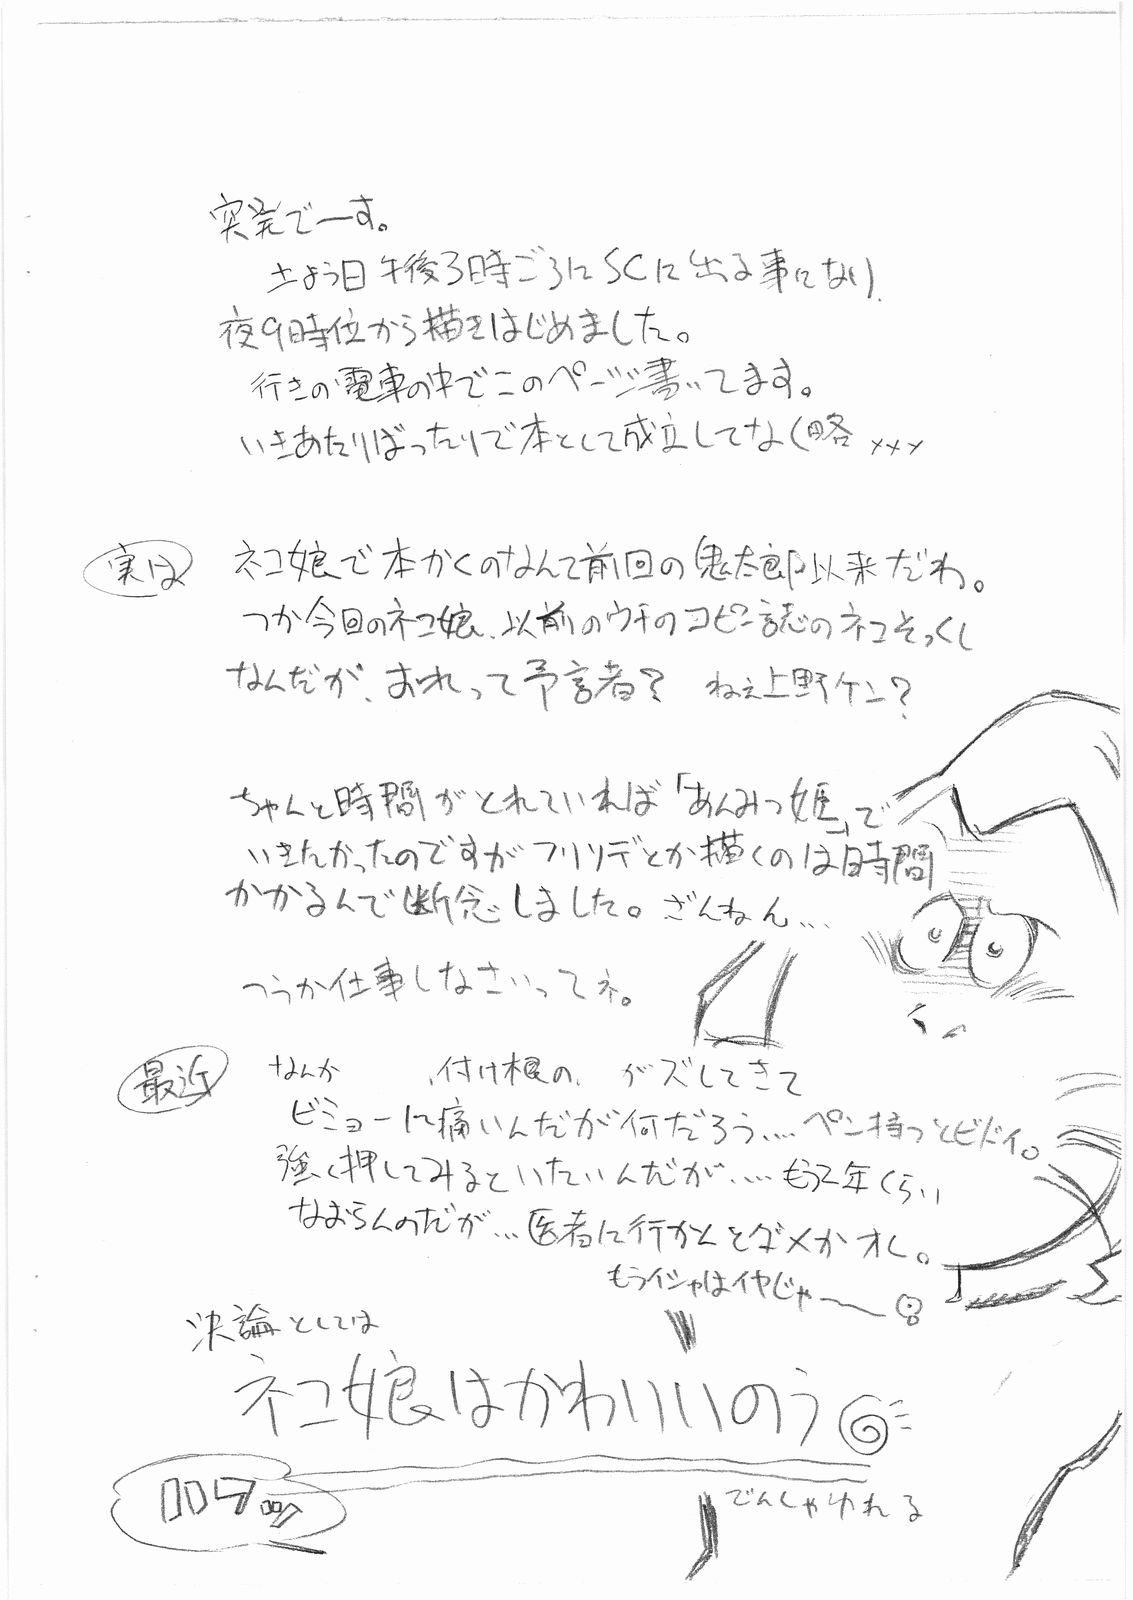 突発でーす。
土よう日午後3時ごろにSCに出る事になり、
夜9時位から描きはじめました。
行きの電車の中でこのページ書いてます。
いきあたりばったりで本として成立してな(略 xxx
実は
ネコ娘で本かくのなんて前回の鬼太郎以来だわ。
つか今回のネコ娘、以前のウチのコピー誌のネコそっくし
なんだが、おれって予言者? ねぇ上野ケン?
ちゃんと時間がとれていれば「あんみつ姫」で
いきたかったのですがフリソデとか描くのは時間
かかるんで断念しました。ざんねん…
つうか仕事しなさいってネ。
最近
なんか 、付け根の、がズしてきて
ビミョーに痛いんだが何だろう…. ペン持つとヒドイ。
強く押してみるといたいんだが….. もう2年くらい
なおらんのだが…医者に行かんとダメかオレ。
もうイシャはイヤじゃ〜
決論としては
ネコ娘はかわいいのう
でんしゃゆれる